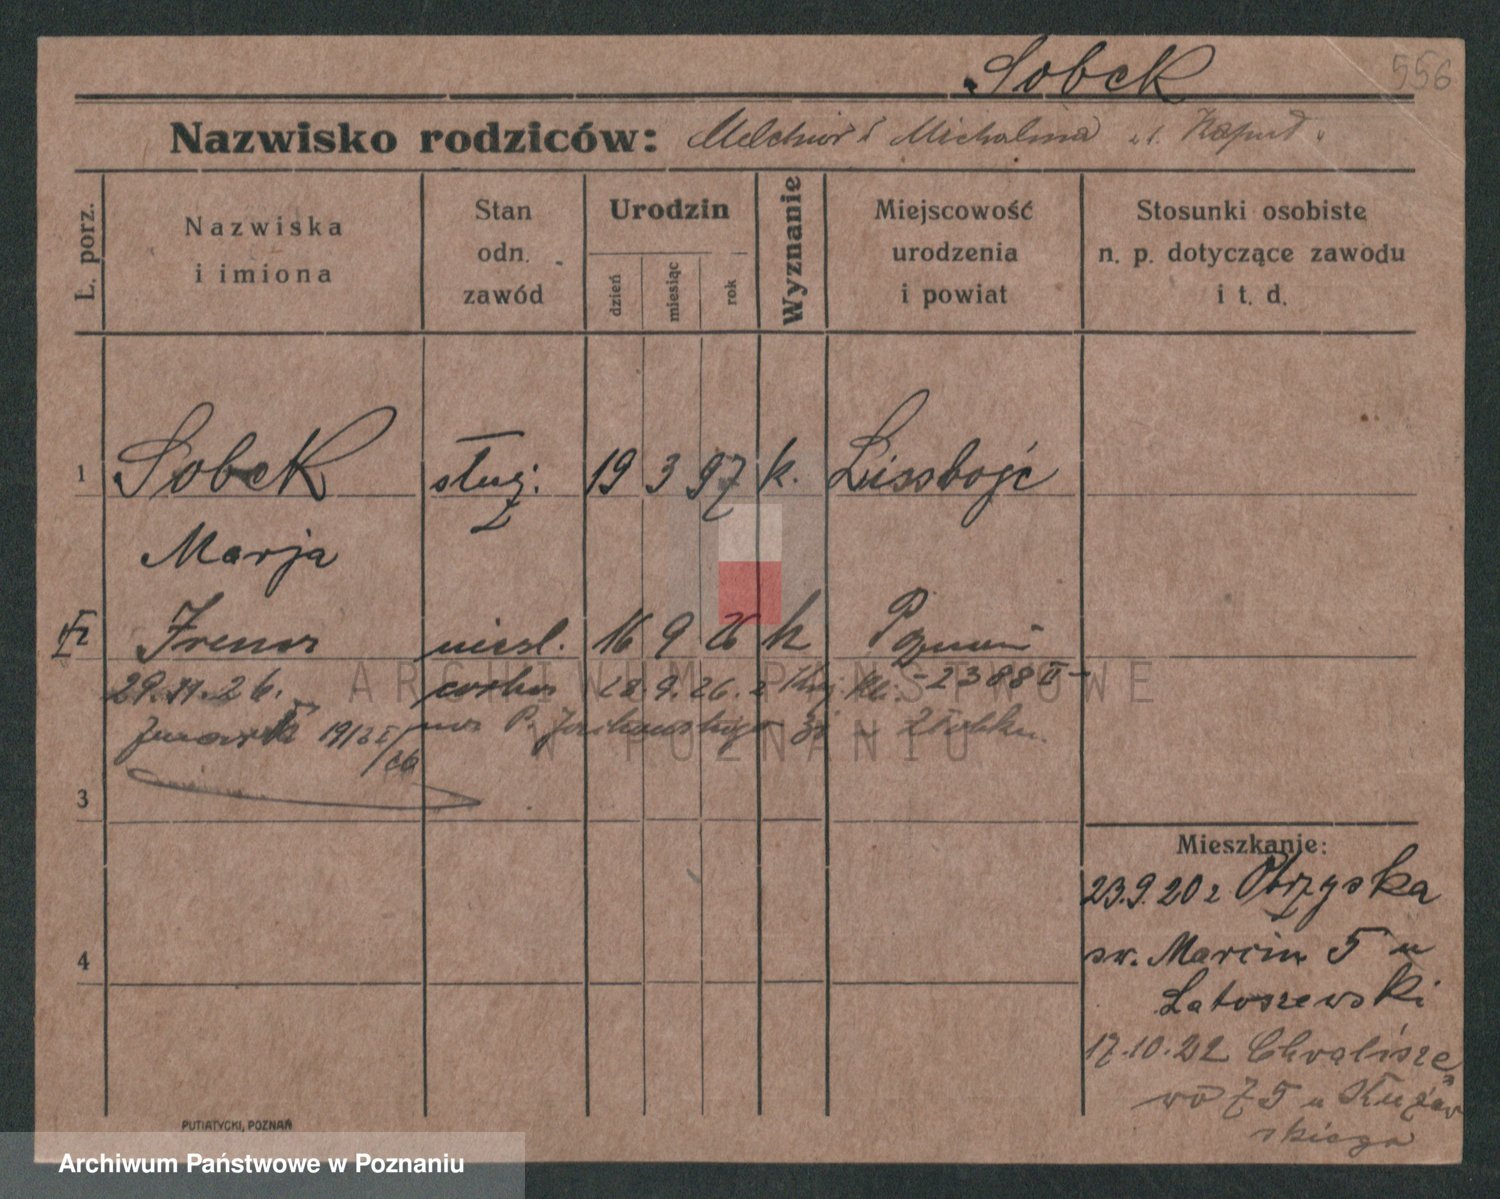 Sobek
556
Nazwisko rodziców: Melchior i Michalina
L. porz.
Nazwiska
i imiona
Stan
odn.
zawód
Urodzin
dzień
miesiąc
rok
Wyznanie
Miejscowość
urodzenia
i powiat
Stosunki osobiste
n. p. dotyczące zawodu
i t. d.
1 Sobek służ. 19 3 97 k. Lissboję
Marja
2 Irena niesl. 16 9 26 k Poznań
29.11.26. córka 28.9.26. -2388 II-
3
Mieszkanie:
23.9.20 z Obrzyska
św. Marcin 5 u
Latoszewski
4
17.10.22 Chwalisze
wo 75 u Kujaw
skiego
PUTIATYCKI, POZNAŃ
ARCHIWUM PAŃSTWOWE
W POZNANIU
Archiwum Państwowe w Poznaniu